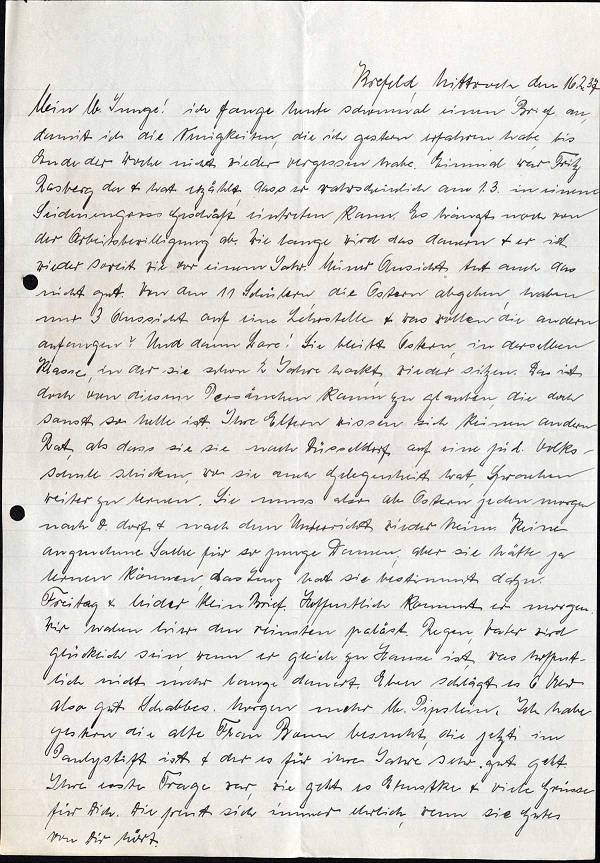 Krefeld, Mittwoch den 16.2.37
Mein lb. Junge! ich fange heute schon mal einen Brief an
damit ich die Neuigkeiten, die ich gestern erfahren habe, bis
Ende der Woche nicht wieder vergessen habe. Einmal war Fritz
Rasberg da & hat erzählt, dass er wahrscheinlich am 1.3. in einem
Seidenengros Geschäft eintreten kann. Es hängt noch von
der Arbeitsbewilligung ab. Wie lange wird das dauern & er ist
wieder soweit wie vor einem Jahr. Meiner Ansicht tut auch das
nicht gut. Von den 11 Schülern, die Ostern abgehen, haben
nur 3 Aussicht auf eine Lehrstelle & was wollen die andern
anfangen? Und dann Lore! Sie bleibt Ostern, in derselben
Klasse, in der sie schon 2 Jahre hockt, wieder sitzen. Das ist
doch von diesem Persönchen kaum zu glauben, die doch
sonst so helle ist. Ihre Eltern wissen sich keinen andern
Rat, als dass sie sie nach Düsseldorf auf eine jüd. Volks-
schule schicken, wo sie auch Gelegenheit hat, Sprachen
weiter zu lernen. Sie muss also ab Ostern jeden morgen
nach D.dorf & nach dem Unterricht wieder heim. Keine
angenehme Sache für so junge Damen, aber sie hätte ja
lernen können, das Zeug hat sie bestimmt dazu.
Freitag & leider kein Brief. Hoffentlich kommt er morgen.
Wir haben hier den reinsten Regen, Vater wird
glücklich sein, wenn er gleich zu Hause ist, was hoffent-
lich nicht mehr lange dauert. Eben schlägt es 6 Uhr
also gut Schabbes. Morgen mehr lb. Pipslein. Ich habe
gestern die alte Frau besucht, die jetzt im
Paulystift ist & der es für ihre Jahre sehr gut geht.
Ihre erste Frage war, wie geht es & viele Grüsse
für Dich. Die freut sich immer ehrlich, wenn sie Gutes
von Dir hört.